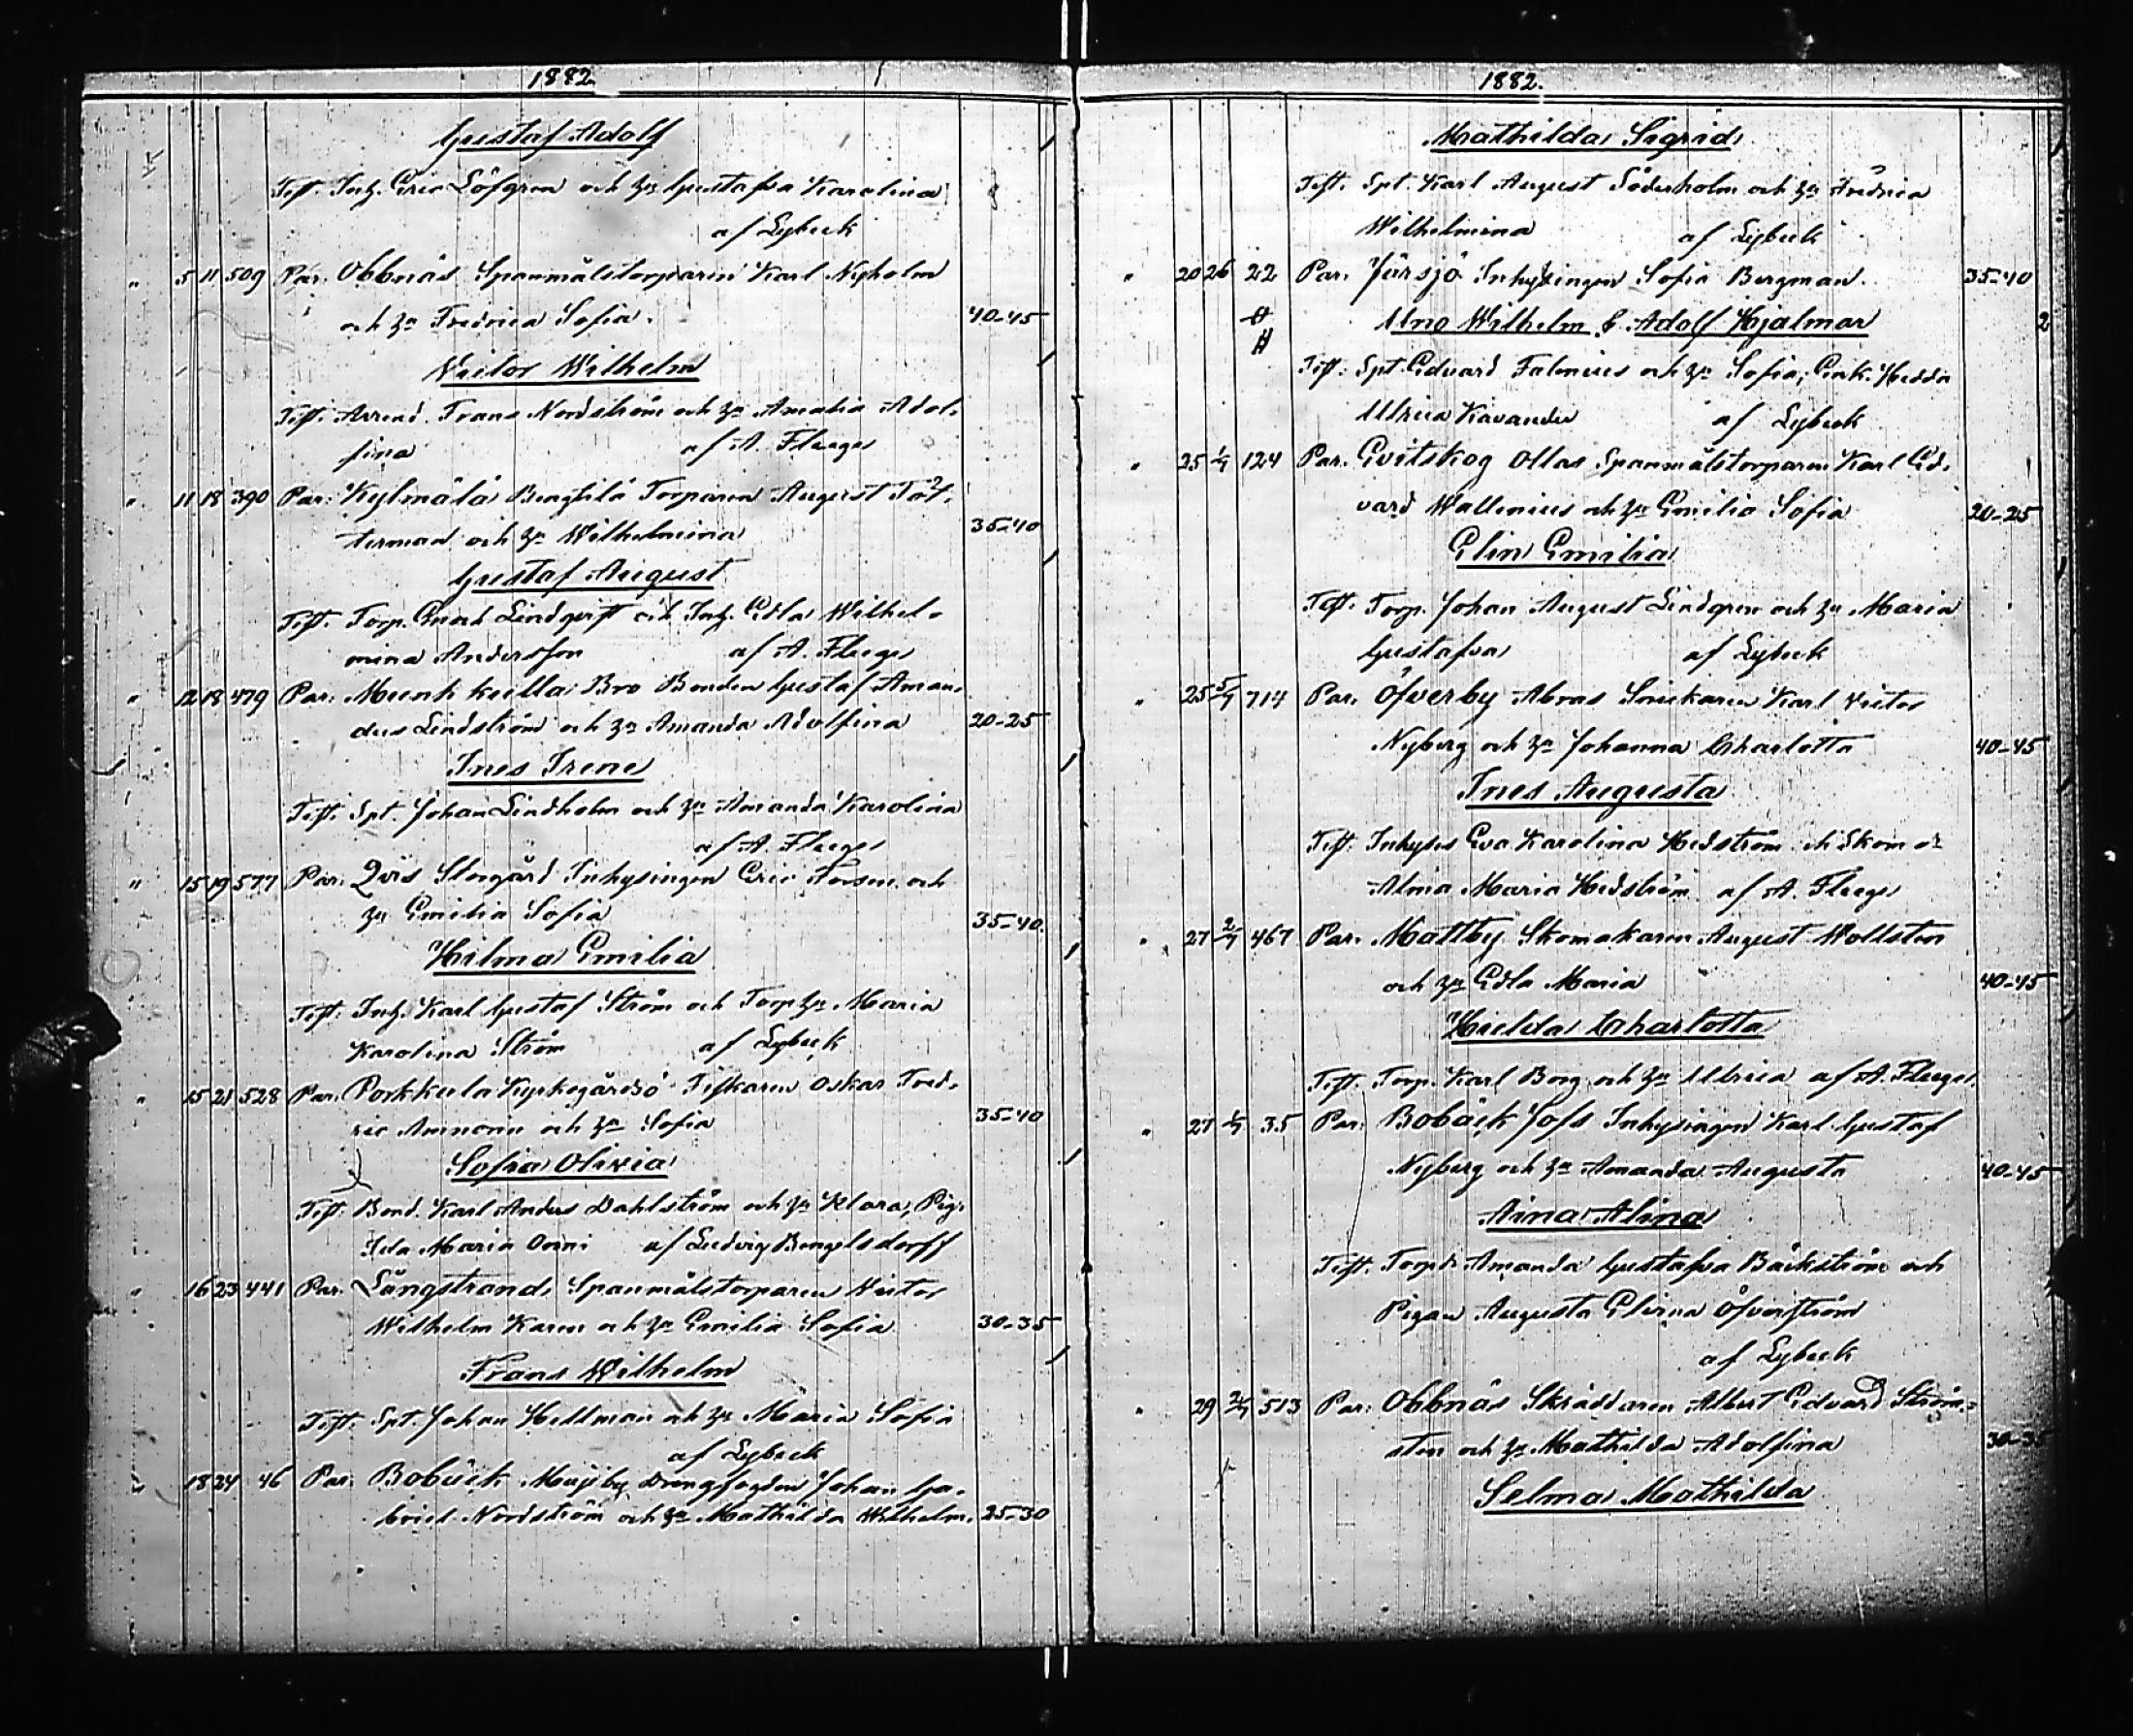 1882
Gustaf Adolf
Test. Inh. Eric Löfgren och hu Gustafva Karolina
af Lybeck
" 5 11 509 Par. Obbnäs Spanmålstorparen Karl Nyholm
och hu Fredrica Sofia. 40-45
Victor Wilhelm
Test. Arrend. Frans Nordström och hu Amalia Adol-
fina af A. Fleege
" 11 18 390 Par. Kylmälä Bengtilä Torparen August Töt-
terman och hu Wilhelmina 35-40
Gustaf August
Test. Torp. Enoch Lindqvist och Inh. Edla Wilhel-
mina Andersson af A. Fleege
" 12 18 479 Par. Munkkulla Bro Bonden Gustaf Aman-
dus Lindström och hu Amanda Adolfina 20-25
Ines Irene
Test. Spt. Johan Lindholm och hu Amanda Karolina
af A. Fleege
" 15 19 577 Par. Qvis Storgård Inhysingen Eric Forsen och
hu Emilia Sofia 35-40
Hilma Emilia
Test. Inh. Karl Gustaf Ström och Torp hu Maria
Karolina Ström af Lybeck
" 15 21 528 Par. Porkkala Kyrkogårdsö Fiskaren Oskar Fred-
ric Ammonn och hu Sofia 35-40
Sofia Olivia
Test. Bond. Karl Anders Dahlström och hu Klara, Pig.
Ida Maria Onni af Ludvig Bengelsdorff
" 16 23 441 Par. Långstrand, Spanmålstorparen Victor
Wilhelm Karen och hu Emilia Sofia 30-35
Frans Wilhelm
Test. Spt. Johan Hellman och hu Maria Sofia
af Lybeck
" 18 24 46 Par. Bobäck Majby Drengfogden Johan Ga-
briel Nordström och hu Mathilda Wilhelm. 25-30
1882.
Mathilda Sigrid
Test. Spt. Karl August Söderholm och hu Fredrica
Wilhelmina af Lybeck
" 20 26 22 Par. Järsjö Inhysingen Sofia Bergman. 35-40
Uno Wilhelm & Adolf Hjalmar 2
Test. Spt. Edvard Falenius och hu Sofia, Enk. Hedda
Ulrica Kavander af Lybeck
" 25 1/7 124 Par. Evitskog Ollas Spanmålstorparen Karl Ed-
vard Wallenius och hu Emilia Sofia 20-25
Elin Emilia
Test. Torp. Johan August Lindgren och hu Maria
Gustafva af Lybeck
" 25 5/7 714 Par. Öfverby Abras Snickaren Karl Victor
Nyberg och hu Johanna Charlotta 40-45
Ines Augusta
Test. Inhyses Eva Karolina Hedström och Skom dr
Alma Maria Hedström af A. Fleege
" 27 2/7 467 Par. Mattby Skomakaren August Wallsten
och hu Edla Maria 40-45
Hulda Charlotta
Test. Torp. Karl Borg och hu Ulrica af A. Fleege.
" 27 1/7 35 Par. Bobäck Jofs Inhysingen Karl Gustaf
Nyberg och hu Amanda Augusta 40-45
Aina Alina
Test. Torp dr Amanda Gustafva Bäckström och
Pigan Augusta Elvina Öfverström
af Lybeck
" 29 2/7 513 Par. Obbnäs Skräddaren Albert Edvard Ström-
sten och hu Mathilda Adolfina 30-35
Selma Mathilda